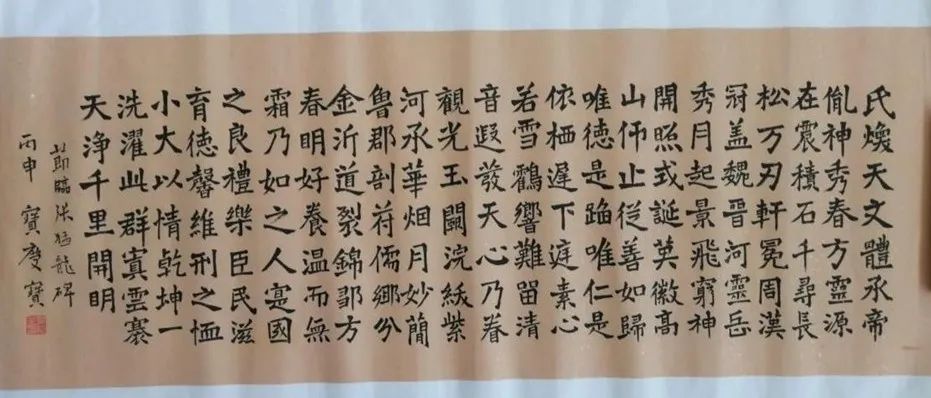 氏煥天文體承帝
胤神秀春方靈源
在震積石千尋長
松万刃軒冕周漢
冠盖魏晉河靈岳
秀月起景飛窮神
開照式誕英徽高
山仰止從善如歸
唯徳是蹈唯仁是
依栖遲下庭素心
若雪鶴響難留清
音遐發天心乃眷
觀光玉闕浣紱紫
河承華烟月妙簡
魯郡剖符儒鄉分
金沂道裂錦鄒方
春明好養温而無
霜乃如之人寔國
之良禮樂臣民滋
育徳馨維刑之恤
小大以情乾坤一
洗濯此群冥雲褰
天净千里開明
節臨張猛龍碑
丙申 寶慶寶